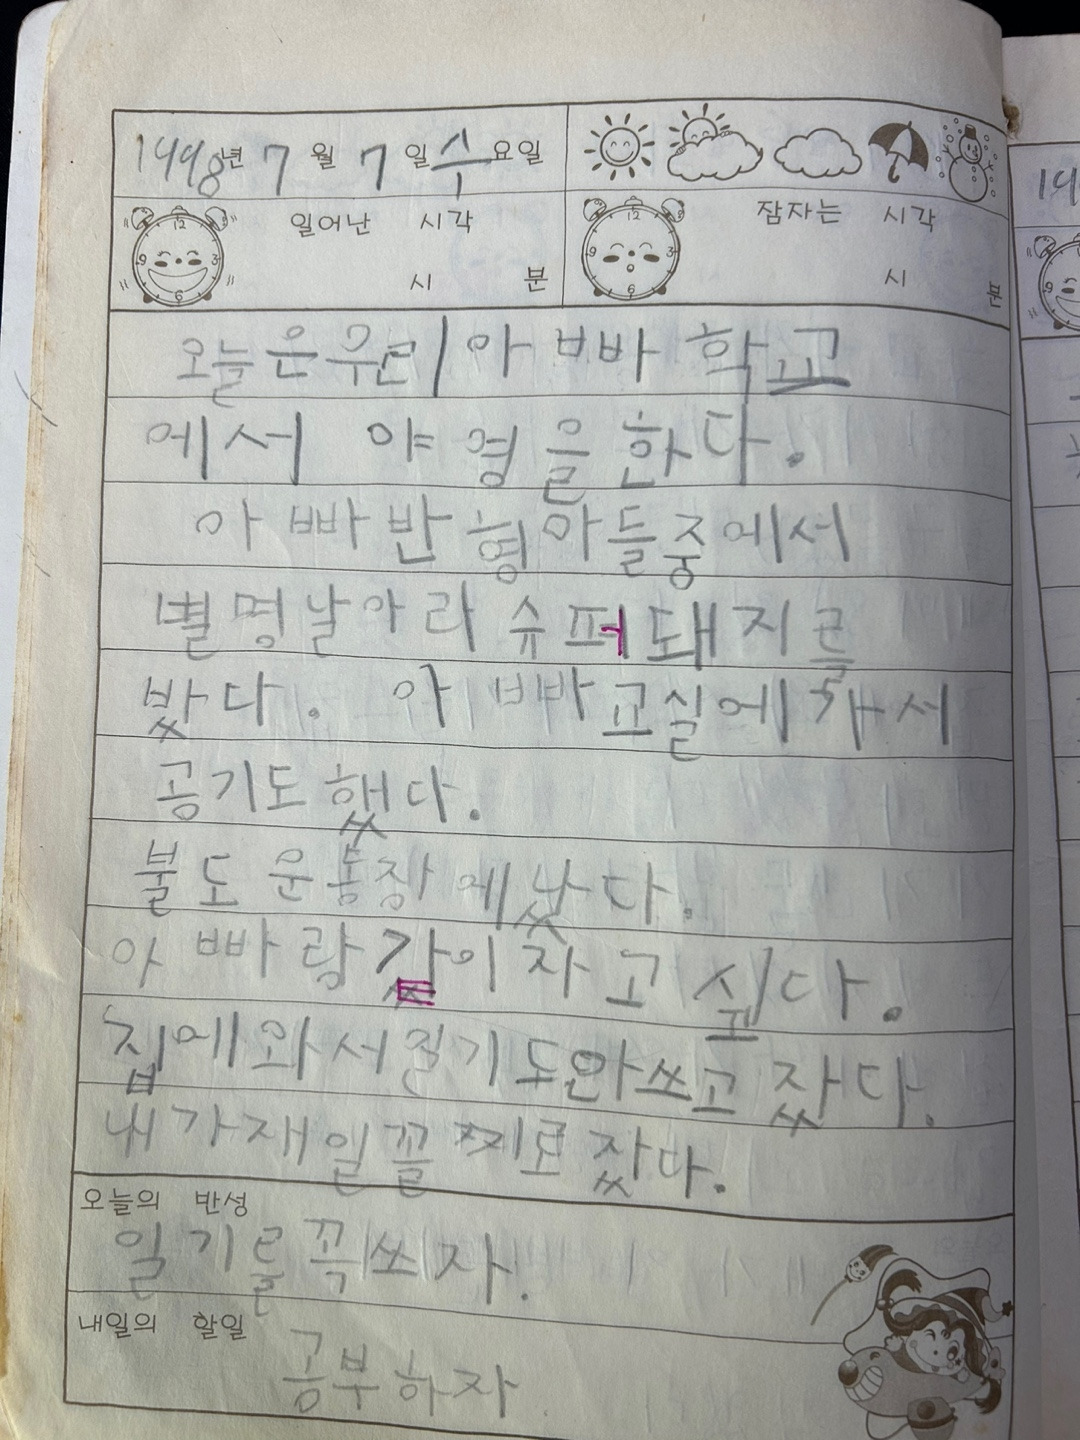 1998년 7월 7일 수요일
일어난 시각
시 분
잠자는 시각
시 분
오늘은 우리 아빠 학교
에서 야영을 한다.
아빠 반 형아들 중에서
별명 날아라 슈퍼돼지를
봤다. 아빠 교실에 가서
공기도 했다.
불도 운동장에 났다.
아빠랑 같이 자고 싶다.
집에 와서 일기도 안 쓰고 잤다.
내가 재일 꼴찌로 잤다.
오늘의 반성
일기를 꼭 쓰자.
내일의 할일
공부하자.